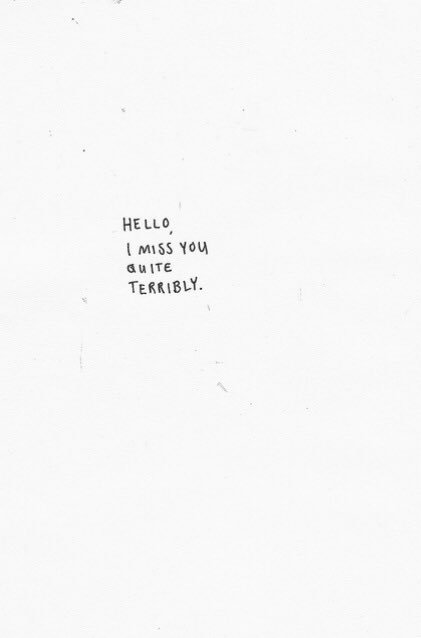 HELLO,
I MISS YOU
QUITE
TERRIBLY.